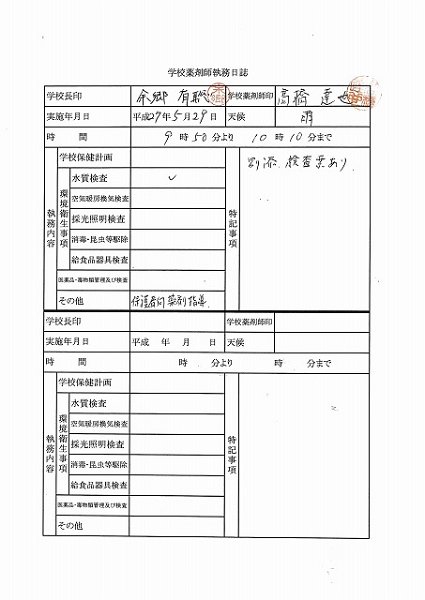 学校薬剤師執務日誌
学校長印 余郷 有聡 学校薬剤師印 高橋 達也
実施年月日 平成27年5月29日 天候
時 間 9時50分より 10時10分まで
学校保健計画
執務内容
環境衛生事項
水質検査 ✓
空気暖房換気検査
採光照明検査
消毒・昆虫等駆除
給食品器具検査
医薬品・毒物類管理及び検査
その他 保護者向薬剤指導
特記事項
別添 検査票あり
学校長印 学校薬剤師印
実施年月日 平成 年 月 日 天候
時 間 時 分より 時 分まで
学校保健計画
執務内容
環境衛生事項
水質検査
空気暖房換気検査
採光照明検査
消毒・昆虫等駆除
給食品器具検査
医薬品・毒物類管理及び検査
その他
特記事項